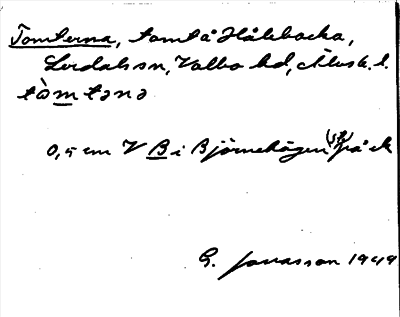 Tomterna, tomt å Håkebacka,
Lerdals sn, Valbo hd, Älvsb. l.
tòmtənə
0,5 cm V B i Björnehögen (st) på ek
G. Jonasson 1949